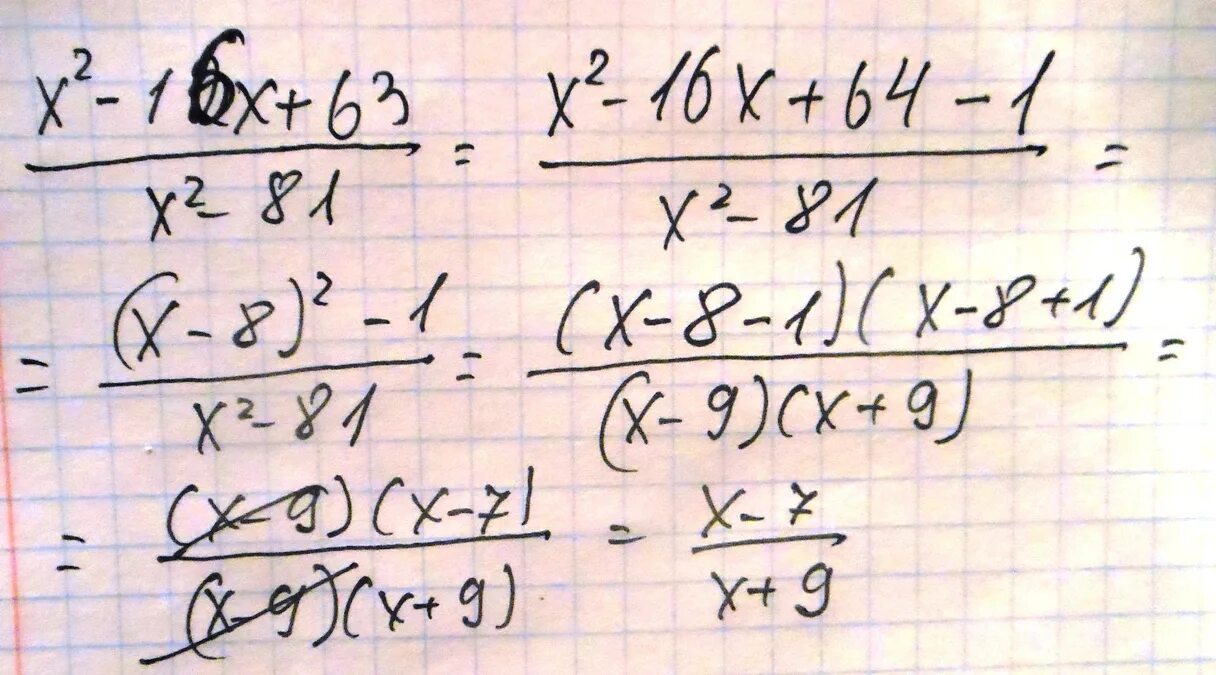 (x² - 16x + 63)/(x² - 81) = (x² - 16x + 64 - 1)/(x² - 81) =
= ((x - 8)² - 1)/(x² - 81) = ((x - 8 - 1)(x - 8 + 1))/((x - 9)(x + 9)) =
= ((x - 9)(x - 7))/((x - 9)(x + 9)) = (x - 7)/(x + 9)